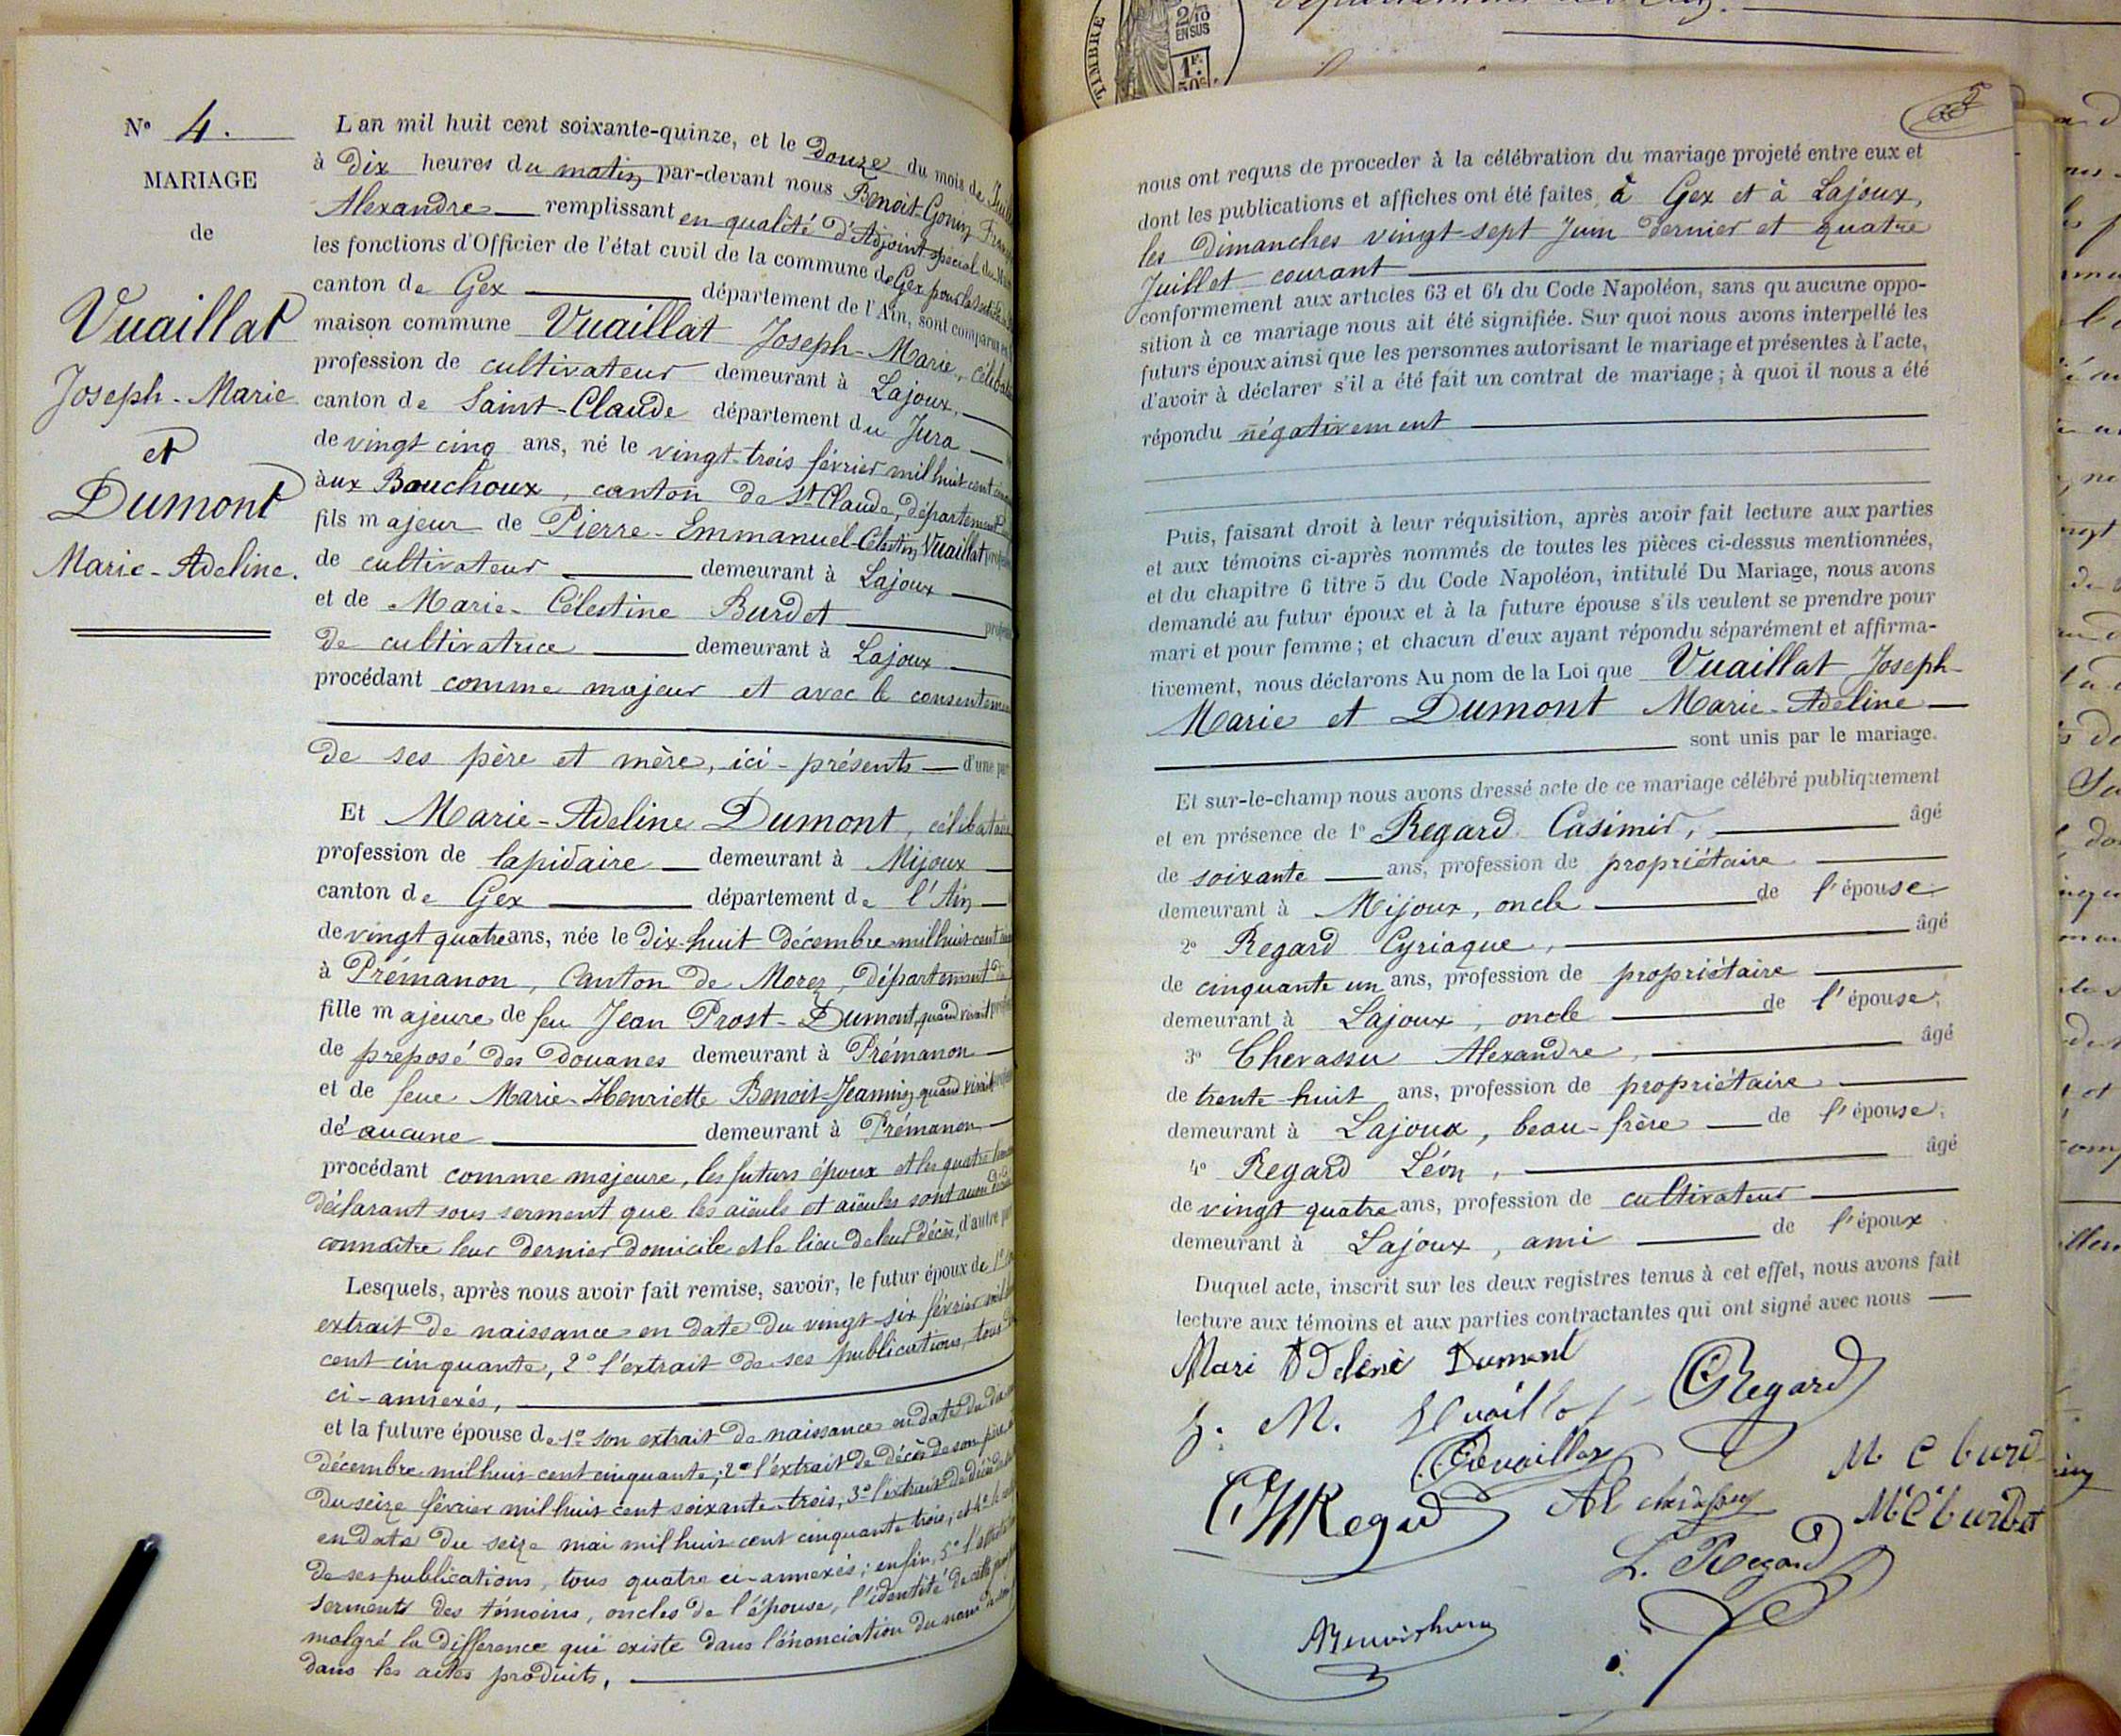 N° 4.
MARIAGE
de
Vuaillat
Joseph-Marie
et
Dumont
Marie-Adeline.
L'an mil huit cent soixante-quinze, et le douze du mois de
à dix heures du matin par-devant nous Benoit-Gonin
Alexandre remplissant en qualité d'Adjoint spécial
les fonctions d'Officier de l'état civil de la commune de Gex pour la
canton de Gex département de l'Ain, sont comparus
maison commune Vuaillat Joseph-Marie,
profession de cultivateur demeurant à Lajoux,
canton de Saint-Claude département du Jura
de vingt cinq ans, né le vingt-trois février mil huit cent
aux Bouchoux, canton de St Claude, département
fils majeur de Pierre-Emmanuel-Célestin Vuaillat
de cultivateur demeurant à Lajoux
et de Marie-Célestine Burdet
de cultivatrice demeurant à Lajoux
procédant comme majeur et avec le
de ses père et mère, ici-présents d'une
Et Marie-Adeline Dumont,
profession de lapidaire demeurant à Mijoux
canton de Gex département de l'Ain
de vingt quatre ans, née le dix-huit décembre mil huit cent
à Prémanon, canton de Morez, département
fille majeure de feu Jean Prost-Dumont, quand vivait
de préposé des douanes demeurant à Prémanon
et de feue Marie-Henriette Benoit-Jeannin, quand vivait
de aucune demeurant à Prémanon
procédant comme majeure, les futurs époux et les quatre
déclarant sous serment que les aïeuls et aïeules sont
connaître leur dernier domicile et le lieu de leur décès, d'autre
Lesquels, après nous avoir fait remise, savoir, le futur époux de 1°
extrait de naissance en date du vingt-six février
cent cinquante, 2° l'extrait de ses publications, tous
ci-annexés,
et la future épouse de 1° son extrait de naissance en date du
décembre mil huit cent cinquante; 2° l'extrait de décès de son père
du seize février mil huit cent soixante-trois; 3° l'extrait de décès de
en date du seize mai mil huit cent cinquante trois; et 4°
de ses publications, tous quatre ci-annexés; enfin, 5°
serments des témoins, oncles de l'épouse, l'identité de cette
malgré la différence qui existe dans l'énonciation du nom
dans les actes produits,
TIMBRE
2/10
EN SUS
1F.
50c.
nous ont requis de procéder à la célébration du mariage projeté entre eux et
dont les publications et affiches ont été faites à Gex et à Lajoux,
les Dimanches vingt-sept Juin dernier et quatre
Juillet courant
conformément aux articles 63 et 64 du Code Napoléon, sans qu'aucune oppo-
sition à ce mariage nous ait été signifiée. Sur quoi nous avons interpellé les
futurs époux ainsi que les personnes autorisant le mariage et présentes à l'acte,
d'avoir à déclarer s'il a été fait un contrat de mariage; à quoi il nous a été
répondu négativement
Puis, faisant droit à leur réquisition, après avoir fait lecture aux parties
et aux témoins ci-après nommés de toutes les pièces ci-dessus mentionnées,
et du chapitre 6 titre 5 du Code Napoléon, intitulé Du Mariage, nous avons
demandé au futur époux et à la future épouse s'ils veulent se prendre pour
mari et pour femme; et chacun d'eux ayant répondu séparément et affirma-
tivement, nous déclarons Au nom de la Loi que Vuaillat Joseph-
Marie et Dumont Marie-Adeline
sont unis par le mariage.
Et sur-le-champ nous avons dressé acte de ce mariage célébré publiquement
et en présence de 1° Regard Casimir, âgé
de soixante ans, profession de propriétaire
demeurant à Mijoux, oncle de l'épouse
2° Regard Cyriaque, âgé
de cinquante un ans, profession de propriétaire
demeurant à Lajoux, oncle de l'épouse,
3° Chevassu Alexandre, âgé
de trente huit ans, profession de propriétaire
demeurant à Lajoux, beau-frère de l'épouse,
4° Regard Léon, âgé
de vingt quatre ans, profession de cultivateur
demeurant à Lajoux, ami de l'époux
Duquel acte, inscrit sur les deux registres tenus à cet effet, nous avons fait
lecture aux témoins et aux parties contractantes qui ont signé avec nous
Mari Adeline Dumont
J. M. Vuaillat
C Regard
M C burd
Regard
Al chevassu
M C burdet
L. Regard